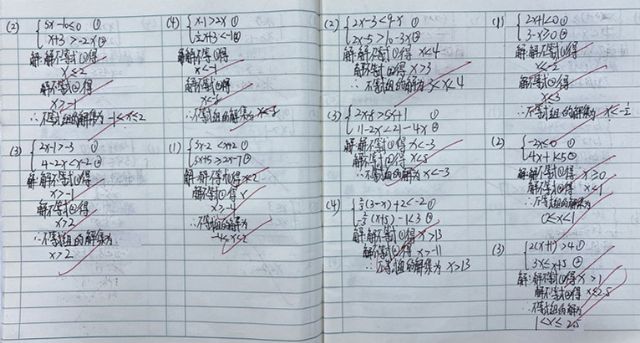 (2) { 5x-10≤0 ①
x+3>-2x ②
解:解不等式①得
x≤2
解不等式②得
x>-1
∴不等式组的解集为 -1<x≤2
(3) { 2x-1>-3 ①
4-2x<x-2 ②
解:解不等式①得
x>-1
解不等式②得
x>2
∴不等式组的解集为
x>2
(4) { x-1>2x ①
解:解不等式①得
x<-1
解不等式②得
∴不等式组的解集为
(1) {
5x+5≥2x-7 ②
解:解不等式①得x<2
解不等式②得x
x>-4
∴不等式组的解集为
(2) { 2x-3<
2x-5>10-3x ②
解:解不等式①得 x<4
解不等式②得 x>3
∴不等式组的解集为 3<x<4
(3) {
11-2x<21-4x ②
解:解不等式①得 x<-3
解不等式②得 x<5
∴不等式组的解集为 x<-3
(4) {
解:解不等式①得 x>13
解不等式②得 x>-11
∴不等式组的解集为 x>13
(1) { 2x+1<0 ①
3-x>0 ②
解:解不等式①得
解不等式②得
x<3
∴不等式组的解集为 x<-½
(2) { -2x≤0 ①
4x+1<5 ②
解:解不等式①得 x≥0
解不等式②得 x<1
∴不等式组的解集为
(3) { 2(x+1)>4 ①
3x≤x+5 ②
解:解不等式①得 x>1
解不等式②得 x≤2.5
∴不等式组的解集为
1<x≤2.5